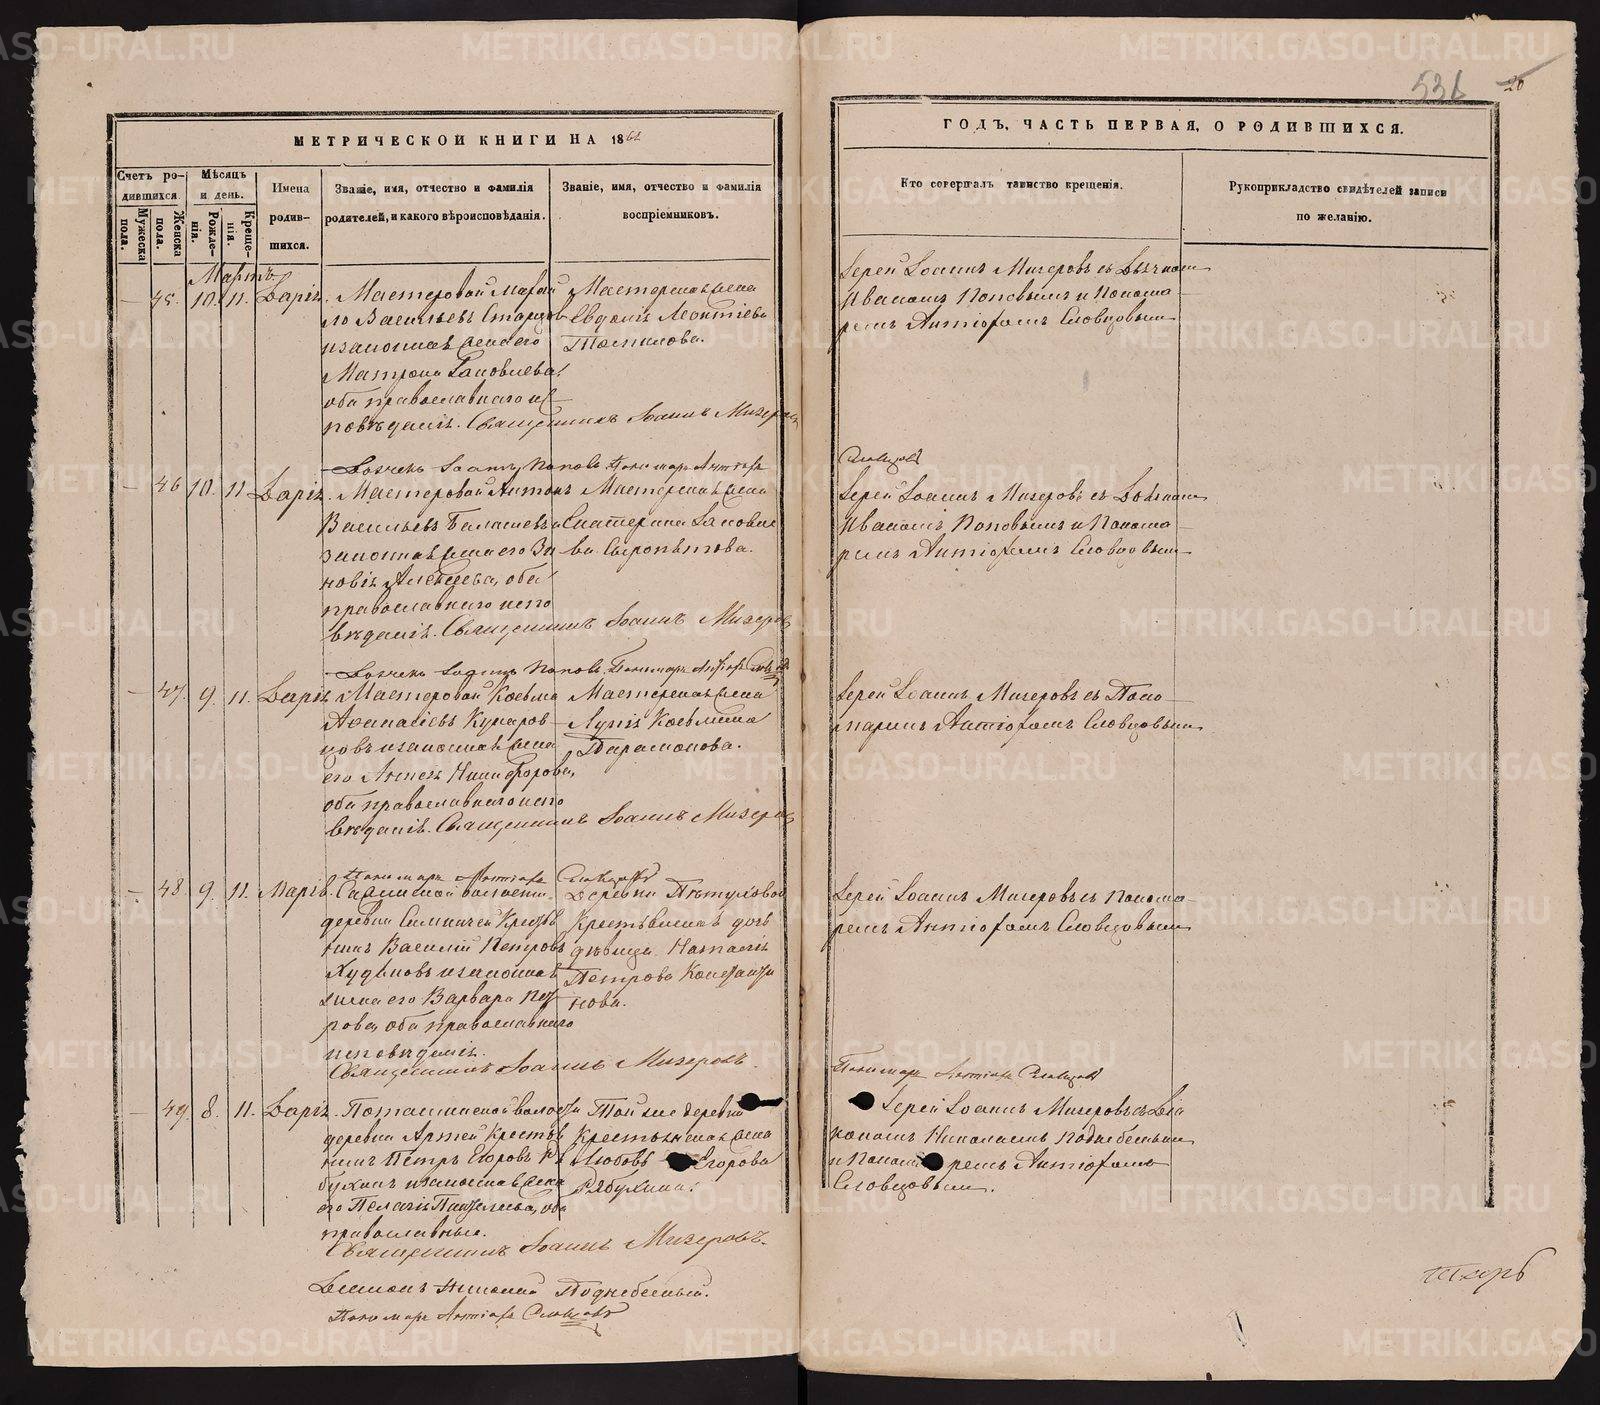 536 20
МЕТРИЧЕСКОЙ КНИГИ НА 1862
Счетъ ро-
дившихся.
Мужеска пола.
Женска пола.
Мѣсяцъ
и день.
Рожде-
нія.
Креще-
нія.
Имена
родив-
шихся.
Званіе, имя, отчество и фамилія
родителей, и какого вѣроисповѣданія.
Званіе, имя, отчество и фамилія
воспріемниковъ.
Мартъ
45. 10. 11. Дарія.
Мастеровой
Васильевъ Старцов
и законная жена его
Матрона Яковлева,
оба православнаго ис
повѣданія. Священникъ Іоаннъ Мизеровъ
Мастерская жена
Евдокія Леонтіева
Томилова.
Дьячекъ Іоаннъ Поповъ. Пономарь Антіохъ
46 10. 11 Дарія.
Мастеровой Антонъ
Васильевъ Балашевъ и
законная жена его Зи
новія Алексѣева, оба
православнаго испо
вѣданія. Священникъ Іоаннъ Мизеровъ
Мастерская жена
Екатерина Яковле
ва Сыропятова.
Дьячекъ Іоаннъ Поповъ. Пономарь Антіохъ Словцовъ
47. 9. 11. Дарія
Мастеровой Косьма
Аѳанасіевъ Кунаров
цовъ и законная жена
его Анна Никифорова,
оба православнаго испо
вѣданія. Священникъ Іоаннъ Мизеровъ
Мастерская жена
Косьмина
Парамонова.
Пономарь Антіохъ Словцовъ
48. 9. 11. Марія.
волости
деревни Крестья
нинъ Василій Петровъ
Худяковъ и законная
жена его Варвара Пет
рова, оба православнаго
исповѣданія.
Священникъ Іоаннъ Мизеровъ.
деревни Пѣтуховой
Крестьянская дочь
дѣвица Наталія
Петрова Константи
нова.
49. 8. 11. Дарія.
волости
деревни Крестья
нинъ Петръ Егоровъ Ря
бухинъ и законная жена
его Пелагія Пантелеева, оба
православные.
Священникъ Іоаннъ Мизеровъ.
Той же деревни
Крестьянская жена
Любовь Егорова
Рябухина.
Діаконъ Николай Поднебесный.
Пономарь Антіохъ Словцовъ
ГОДЪ, ЧАСТЬ ПЕРВАЯ, О РОДИВШИХСЯ.
Кто совершалъ таинство крещенія.
Рукоприкладство свидѣтелей записи
по желанію.
Іерей Іоаннъ Мизеровъ съ Дьячкомъ
Иваномъ Поповымъ и Понома
ремъ Антіохомъ Словцовымъ
Словцовъ
Іерей Іоаннъ Мизеровъ съ Дьячкомъ
Иваномъ Поповымъ и Понома
ремъ Антіохомъ Словцовымъ
Іерей Іоаннъ Мизеровъ съ Поно
маремъ Антіохомъ Словцовымъ
Іерей Іоаннъ Мизеровъ съ Понома
ремъ Антіохомъ Словцовымъ
Пономарь Антіохъ Словцовъ
Іерей Іоаннъ Мизеровъ съ Діа
кономъ Николаемъ Поднебеснымъ
и Понома ремъ Антіохомъ
Словцовымъ.
METRIKI.GASO-URAL.RU